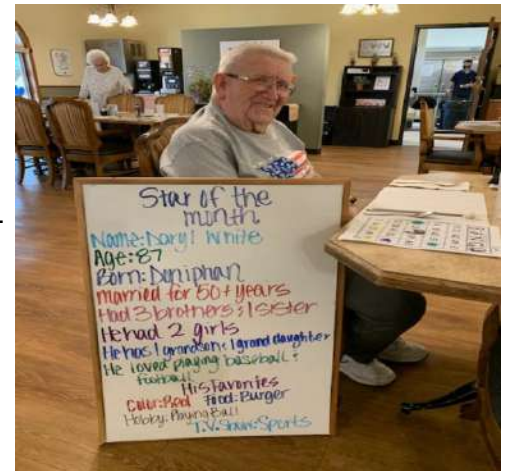 Star of the
month
Name: Daryl White
Age: 87
Born: Doniphan
married for 50+ years
Had 3 brothers & 1 sister
He had 2 girls
He has 1 grandson & 1 grand daughter
He loved playing baseball &
football
His Favorites
Color: Red Food: Burger
Hobby: Playing Ball
T.V. Show: Sports